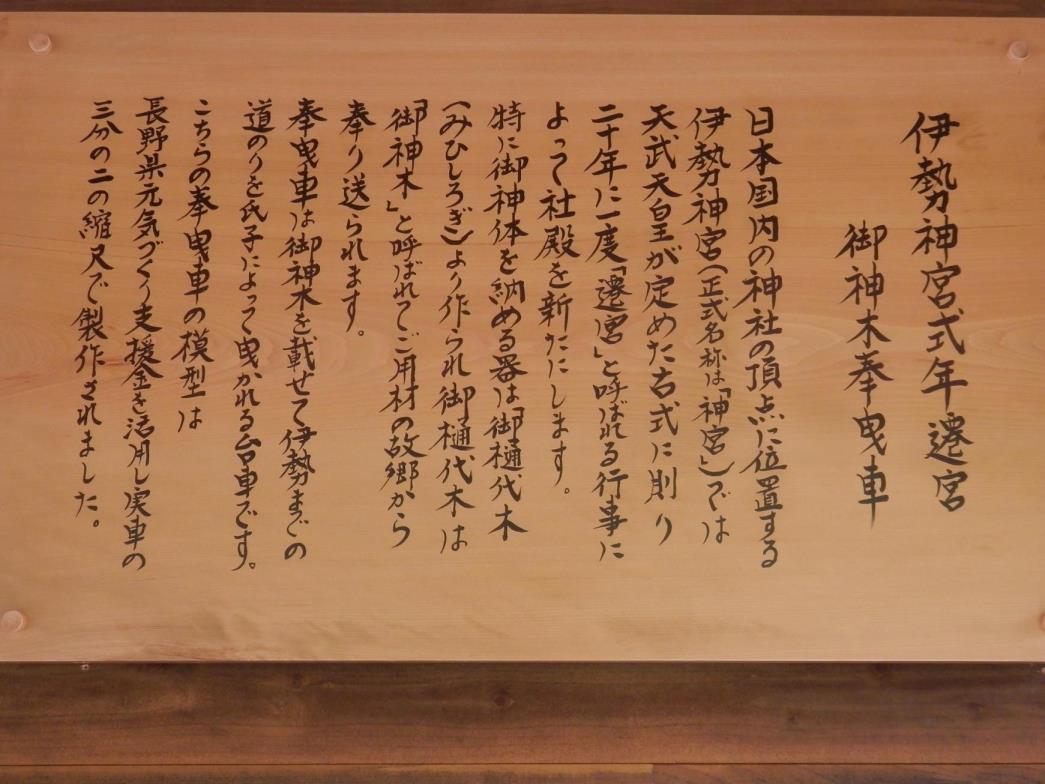 伊勢神宮式年遷宮
御神木奉曳車
日本国内の神社の頂点に位置する
伊勢神宮(正式名称は「神宮」)では
天武天皇が定めた古式に則り
二十年に一度「遷宮」と呼ばれる行事に
よって社殿を新たにします。
特に御神体を納める器は「御樋代木
(みひしろぎ)」より作られ御樋代木は
「御神木」と呼ばれてご用材の故郷から
奉り送られます。
奉曳車は御神木を載せて伊勢までの
道のりを氏子によって曳かれる台車です。
こちらの奉曳車の模型は
長野県元気づくり支援金を活用し実車の
三分の二の縮尺で製作されました。